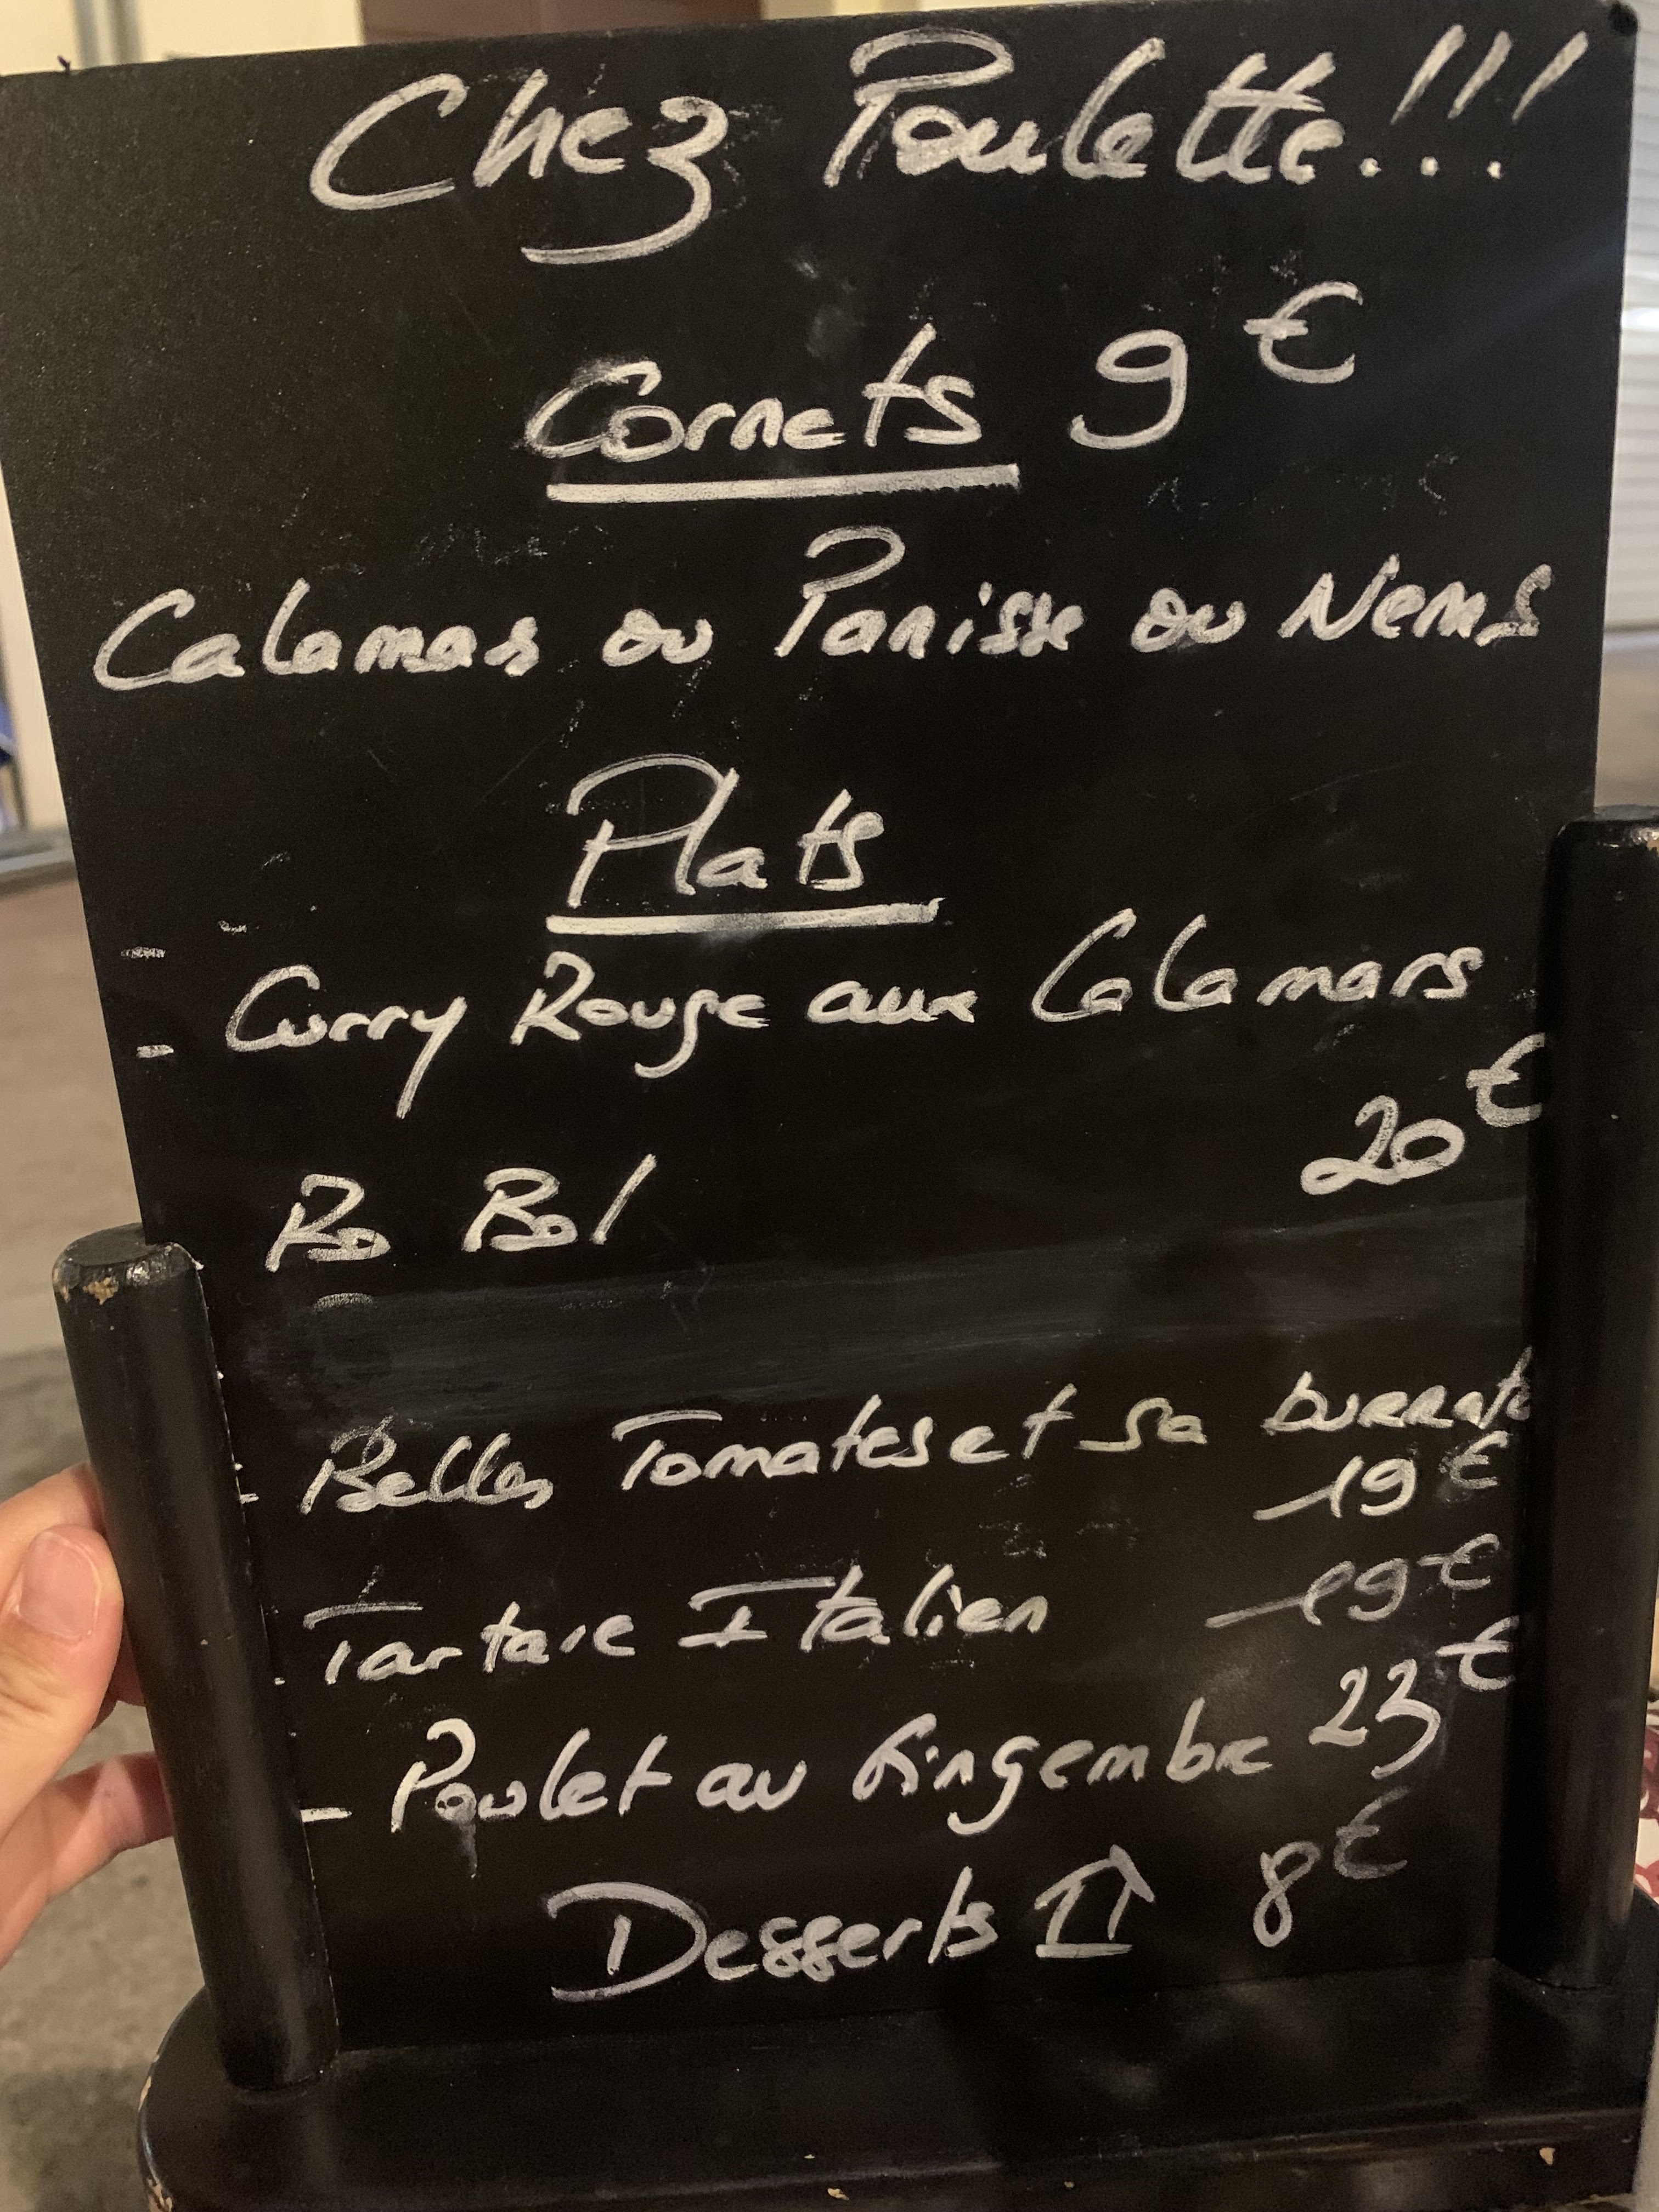 Chez Poulette!!!
Cornets 9€
Calamars ou Panisse ou Nems
Plats
- Curry Rouge aux Calamars
20€
Bo Bol
- Belles Tomates et sa burrata
19€
- Tartare Italien 19€
- Poulet au Gingembre 23€
Desserts 8€